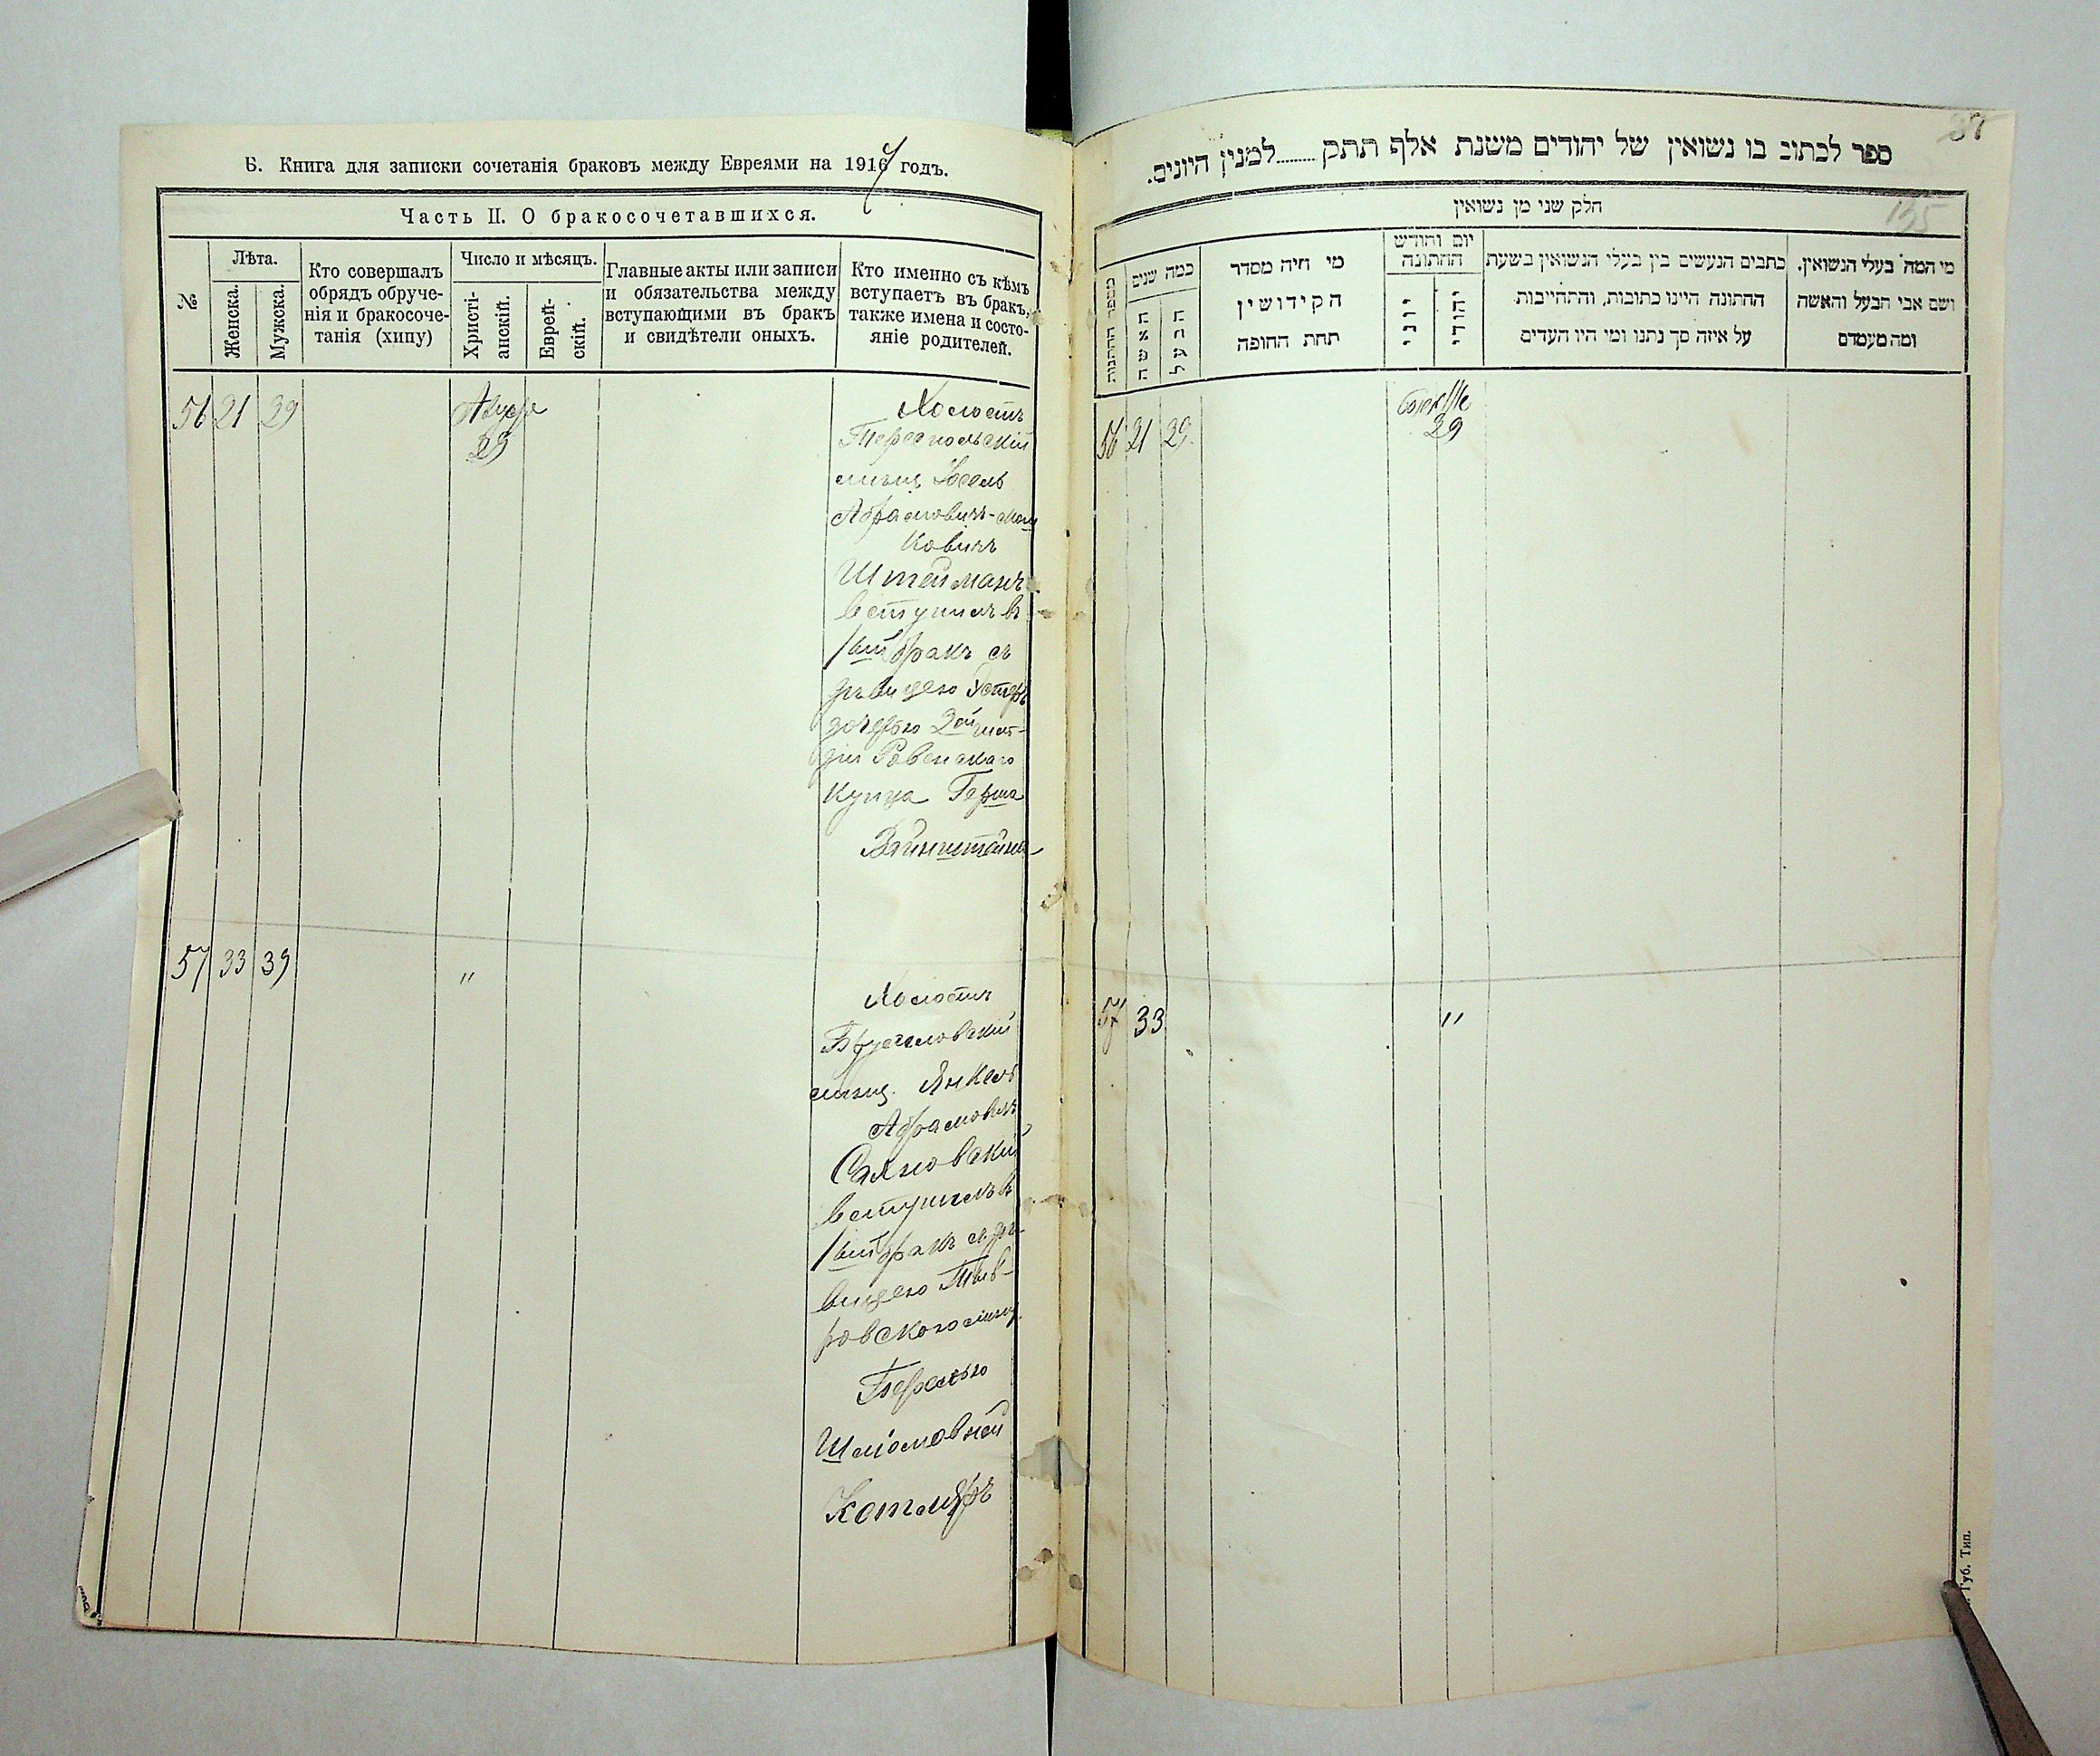 Б. Книга для записки сочетанія браковъ между Евреями на 1917 годъ.
Часть II. О бракосочетавшихся.
№
Лѣта.
Женска.
Мужска.
Кто совершалъ
обрядъ обруче-
нія и бракосоче-
танія (хипу)
Число и мѣсяцъ.
Христі-
анскій.
Еврей-
скій.
Главные акты или записи
и обязательства между
вступающими въ бракъ
и свидѣтели оныхъ.
Кто именно съ кѣмъ
вступаетъ въ бракъ,
также имена и состо-
яніе родителей.
56 21 29
29
Холостъ
Тереспольскій
мѣщ Іосель
Абрамовичъ-Мош
ковичъ
Штейманъ
вступилъ въ
1ый бракъ съ
дѣвицею Эстеръ
дочерью 2ой гил-
діи Ровенскаго
купца Герша
Вайнштейна
57 33 39 "
Холостъ
Брацловскій
мѣщ. Янкель
Абрамовичъ
вступилъ въ
1ый бракъ съ дѣ-
вицею Тыв-
ровского мѣщ.
Шліомовной
Котляръ
37
135
ספר לכתוב בו נשואין של יהודים משנת אלף תתק........למנין היונים.
חלק שני מן נשואין
מספר החתונות
כמה שנים
האשה
הבעל
מי היה מסדר
הקידושין
תחת החופה
יום וחודש
החתונה
יוני
יהודי
כתבים הנעשים בין בעלי הנשואין בשעת
החתונה היינו כתובות, והתחייבות
על איזה סך נתנו ומי היו העדים
מי המה בעלי הנשואין.
ושם אבי הבעל והאשה
ומה מעמדם
56 21 29
29
57 33 "
Губ. Тип.